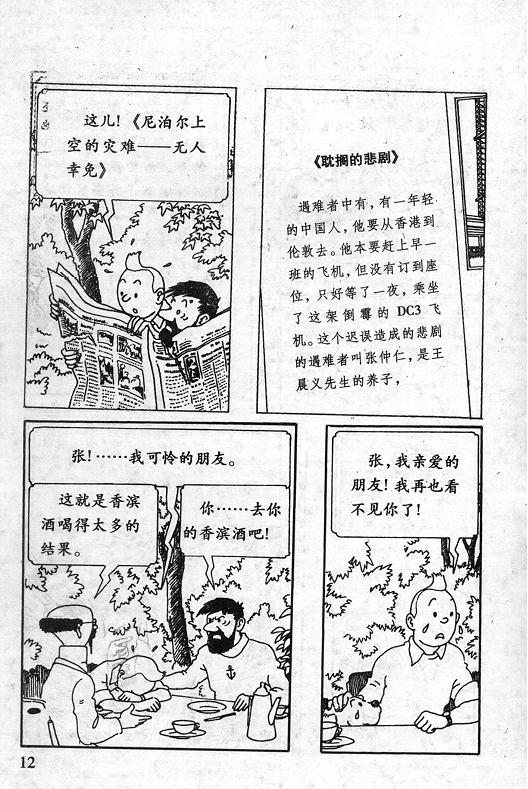 这儿!《尼泊尔上
空的灾难——无人
幸免》
《耽搁的悲剧》
遇难者中有,有一年轻
的中国人,他要从香港到
伦敦去。他本要赶上早一
班的飞机,但没有订到座
位,只好等了一夜,乘坐
了这架倒霉的 DC3 飞
机。这个迟误造成的悲剧
的遇难者叫张仲仁,是王
晨义先生的养子,
张!……我可怜的朋友。
这就是香滨
酒喝得太多的
结果。
你……去你
的香滨酒吧!
张,我亲爱的
朋友!我再也看
不见你了!
12